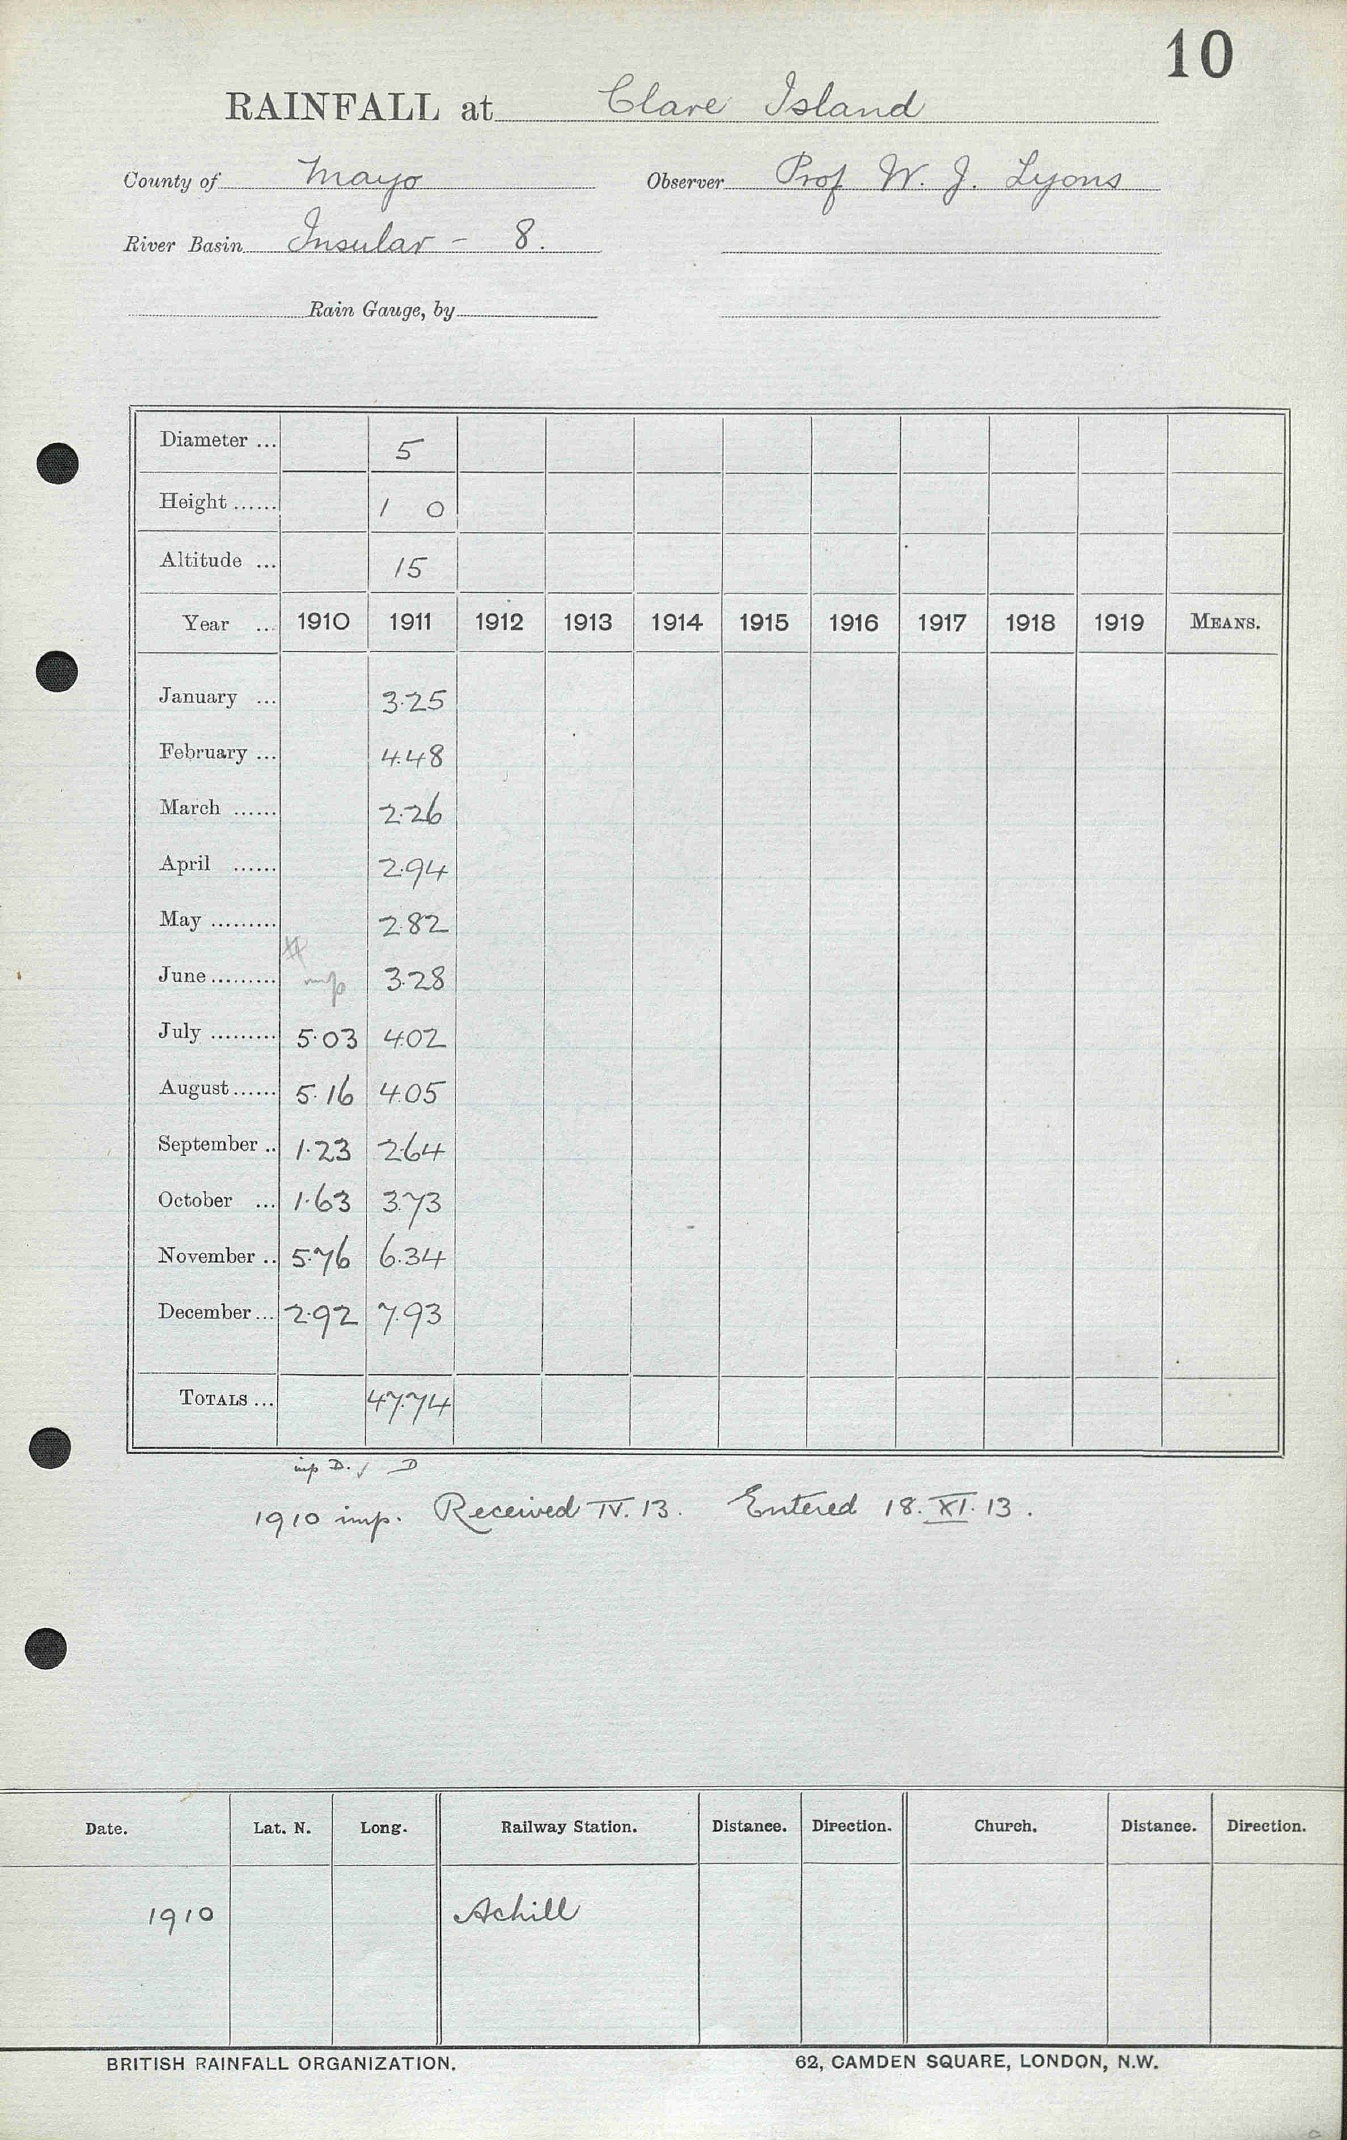 10
RAINFALL at Clare Island
County of Mayo Observer Prof W. J. Lyons
River Basin Insular - 8.
Rain Gauge, by
Diameter ... 5
Height ...... 1 0
Altitude ... 15
Year ... 1910 1911 1912 1913 1914 1915 1916 1917 1918 1919 MEANS.
January ... 3.25
February ... 4.48
March ...... 2.26
April ...... 2.94
May ......... 2.82
June ......... imp 3.28
July ......... 5.03 4.02
August ...... 5.16 4.05
September .. 1.23 2.64
October ... 1.63 3.73
November .. 5.76 6.34
December ... 2.92 7.93
TOTALS ... 47.74
imp D. ✓ D
1910 imp. Received IV. 13. Entered 18. XI. 13.
Date. Lat. N. Long. Railway Station. Distance. Direction. Church. Distance. Direction.
1910 Achill
BRITISH RAINFALL ORGANIZATION. 62, CAMDEN SQUARE, LONDON, N.W.